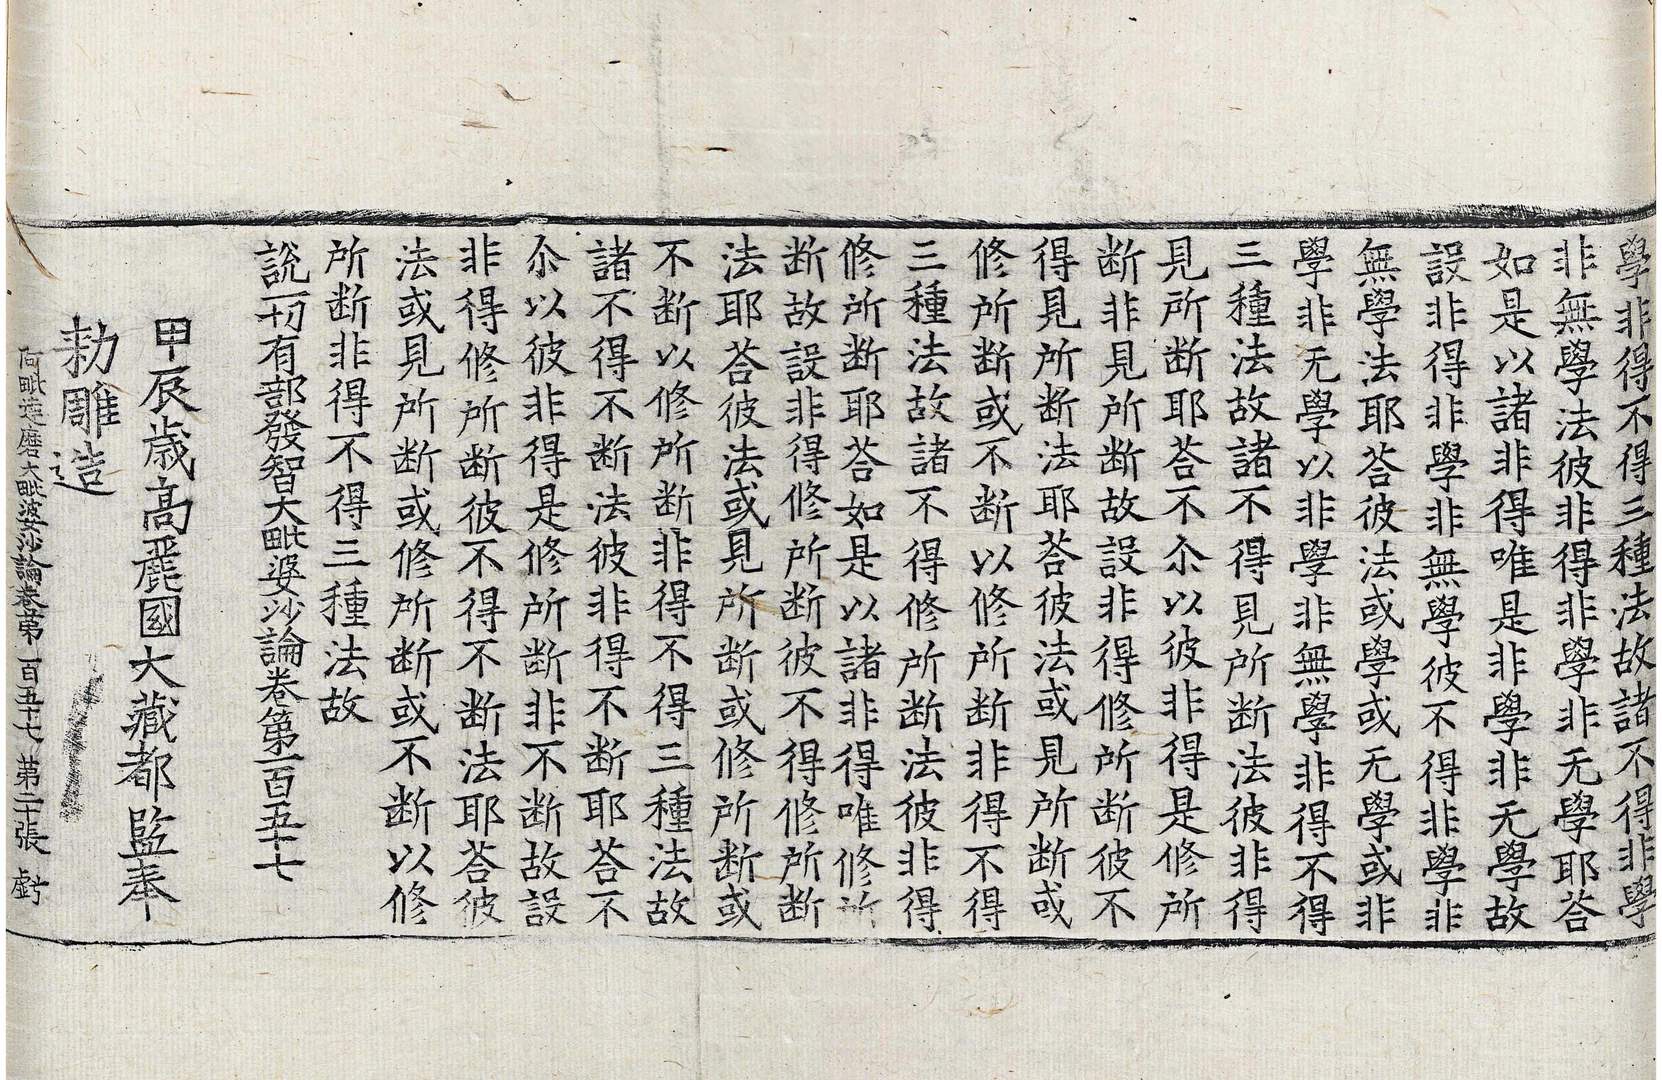 學非得不得三種法故諸不得非學
非無學法彼非得非學非无學耶荅
如是以諸非得唯是非學非无學故
設非得非學非無學彼不得非學非
無學法耶荅彼法或學或无學或非
學非无學以非學非無學非得不得
三種法故諸不得見所断法彼非得
見所断耶荅不尒以彼非得是修所
断非見所断故設非得修所断彼不
得見所断法耶荅彼法或見所断或
修所断或不断以修所断非得不得
三種法故諸不得修所断法彼非得
修所断耶荅如是以諸非得唯修所
断故設非得修所断彼不得修所断
法耶荅彼法或見所断或修所断或
不断以修所断非得不得三種法故
諸不得不断法彼非得不断耶荅不
尒以彼非得是修所断非不断故設
非得修所断彼不得不断法耶荅彼
法或見所断或修所断或不断以修
所断非得不得三種法故
說一切有部發智大毗婆沙論卷第一百五十七
甲辰歲高麗國大藏都監奉
勅雕造
阿毗達磨大毗婆沙論卷第一百五十七 第二十張 虧